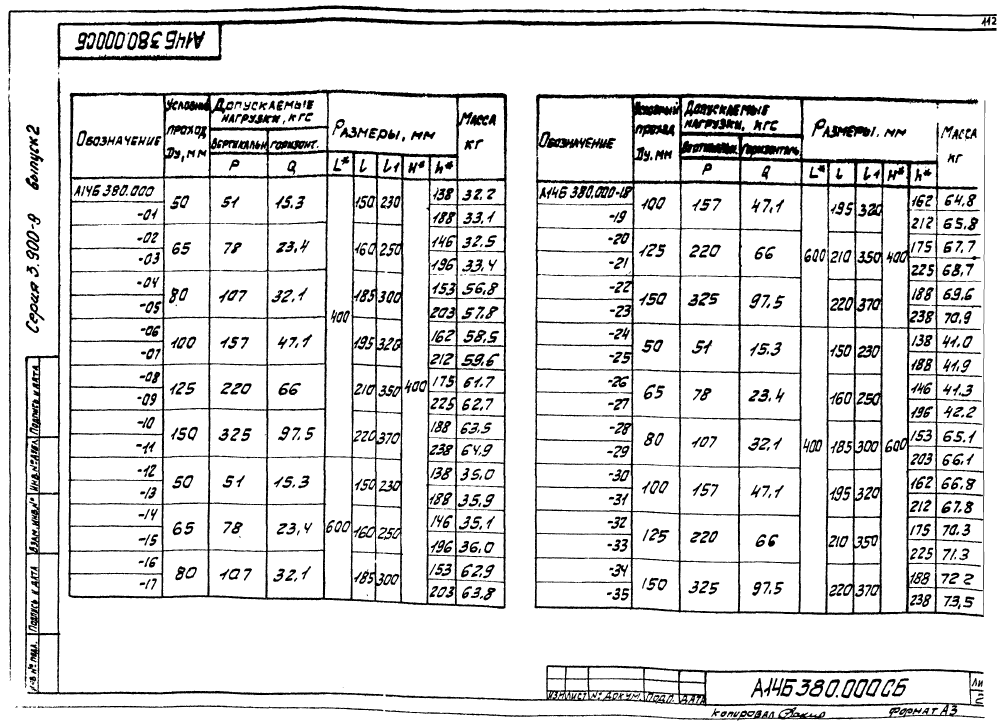 112
А14Б 380.000СБ
Серия 3.900-8 Выпуск 2
Обозначение Условный проход Dу, мм Допускаемые нагрузки, кгс Размеры, мм Масса кг
Вертикальн. горизонт.
P Q L* l l1 H* h*
А14Б 380.000 50 51 15.3 400 150 230 400 138 32.2
-01 188 33.1
-02 65 78 23,4 160 250 146 32,5
-03 196 33,4
-04 80 107 32.1 185 300 153 56,8
-05 203 57.8
-06 100 157 47,1 195 320 162 58,5
-07 212 59.6
-08 125 220 66 210 350 175 61.7
-09 225 62,7
-10 150 325 97.5 220 370 188 63.5
-11 238 64.9
-12 50 51 15.3 600 150 230 138 35,0
-13 188 35,9
-14 65 78 23,4 160 250 146 35,1
-15 196 36,0
-16 80 107 32.1 185 300 153 62,9
-17 203 63.8
Обозначение Условный проход Dу, мм Допускаемые нагрузки, кгс Размеры, мм Масса кг
Вертикальн. Горизонталь.
P Q L* l l1 H* h*
А14Б 380.000-18 100 157 47.1 600 195 320 400 162 64,8
-19 212 65.8
-20 125 220 66 210 350 175 67.7
-21 225 68,7
-22 150 325 97.5 220 370 188 69.6
-23 238 70,9
-24 50 51 15.3 400 150 230 600 138 41.0
-25 188 41,9
-26 65 78 23.4 160 250 146 41.3
-27 196 42.2
-28 80 107 32,1 185 300 153 65.1
-29 203 66.1
-30 100 157 47,1 195 320 162 66,8
-31 212 67.8
-32 125 220 66 210 350 175 70.3
-33 225 71.3
-34 150 325 97.5 220 370 188 72 2
-35 238 73,5
Инв. № подл. Подпись и дата Взам. инв. № Инв. № дубл. Подпись и дата
Изм Лист № докум. Подп. Дата
А14Б 380.000 СБ
Ли
Копировал
Формат А3